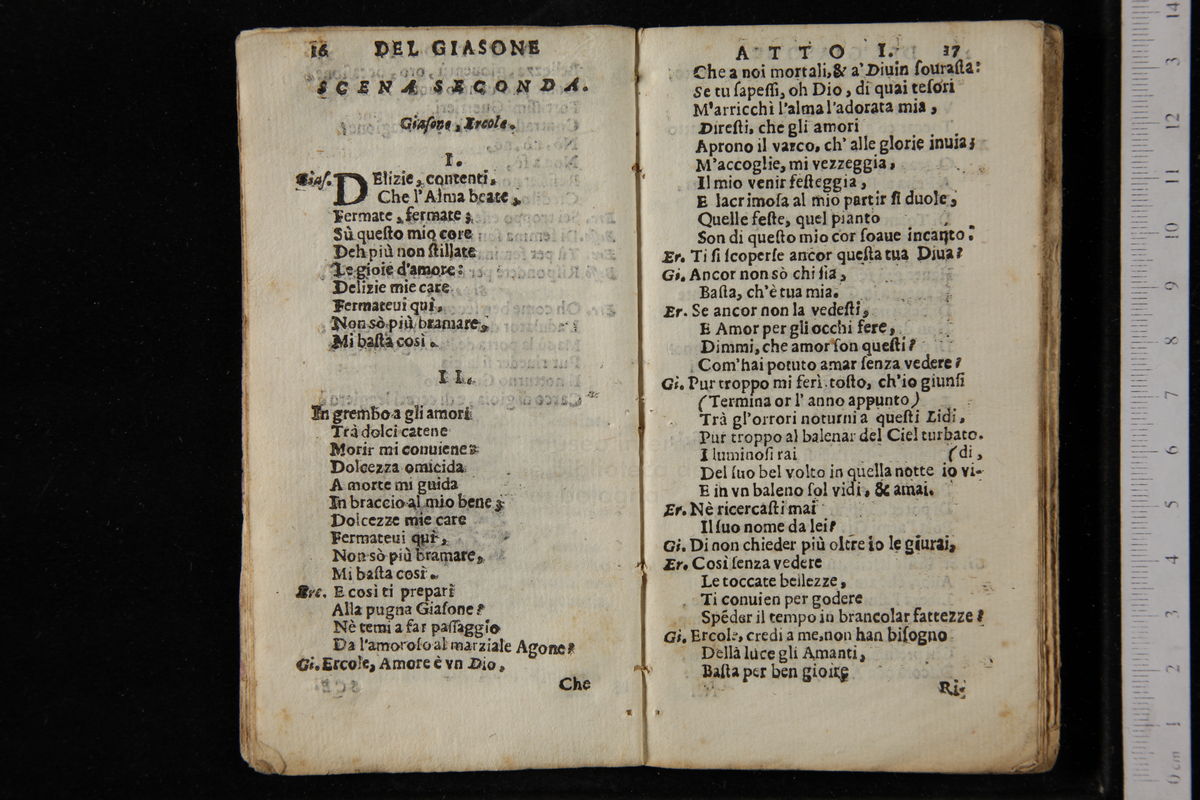 16 DEL GIASONE
SCENA SECONDA.
Giasone, Ercole.
I.
Gias. DElizie, contenti,
Che l'Alma beate,
Fermate, fermate;
Sù questo mio core
Deh più non stillate
Le gioie d'amore:
Delizie mie care
Fermateui quì,
Non sò più bramare,
Mi basta così.
II.
In grembo a gli amori
Trà dolci catene
Morir mi conuiene:
Dolcezza omicida
A morte mi guida
In braccio al mio bene;
Dolcezze mie care
Fermateui quì,
Non sò più bramare,
Mi basta così.
Erc. E cosi ti prepari
Alla pugna Giasone?
Nè temi a far passaggio
Da l'amoroso al marziale Agone?
Gi. Ercole, Amore è vn Dio,
Che
ATTO I. 17
Che a noi mortali, & a' Diuin sourasta:
Se tu sapessi, oh Dio, di quai tesori
M'arricchì l'alma l'adorata mia,
Diresti, che gli amori
Aprono il varco, ch' alle glorie inuia;
M'accoglie, mi vezzeggia,
Il mio venir festeggia,
E lacrimosa al mio partir si duole,
Quelle feste, quel pianto
Son di questo mio cor soaue incanto:
Er. Ti si scoperse ancor questa tua Diua?
Gi. Ancor non sò chi sia,
Basta, ch'è tua mia.
Er. Se ancor non la vedesti,
E Amor per gli occhi fere,
Dimmi, che amor son questi?
Com'hai potuto amar senza vedere?
Gi. Pur troppo mi ferì tosto, ch'io giunsi
(Termina or l' anno appunto)
Trà gl'orrori noturni a questi Lidi,
Pur troppo al balenar del Ciel turbato.
I luminosi rai (di,
Del suo bel volto in quella notte io vi-
E in vn baleno sol vidi, & amai.
Er. Nè ricercasti mai
Il suo nome da lei?
Gi. Di non chieder più oltre io le giurai,
Er. Così senza vedere
Le toccate bellezze,
Ti conuien per godere
Spēder il tempo in brancolar fattezze?
Gi. Ercole, credi a me, non han bisogno
Della luce gli Amanti,
Basta per ben gioire
Ri-